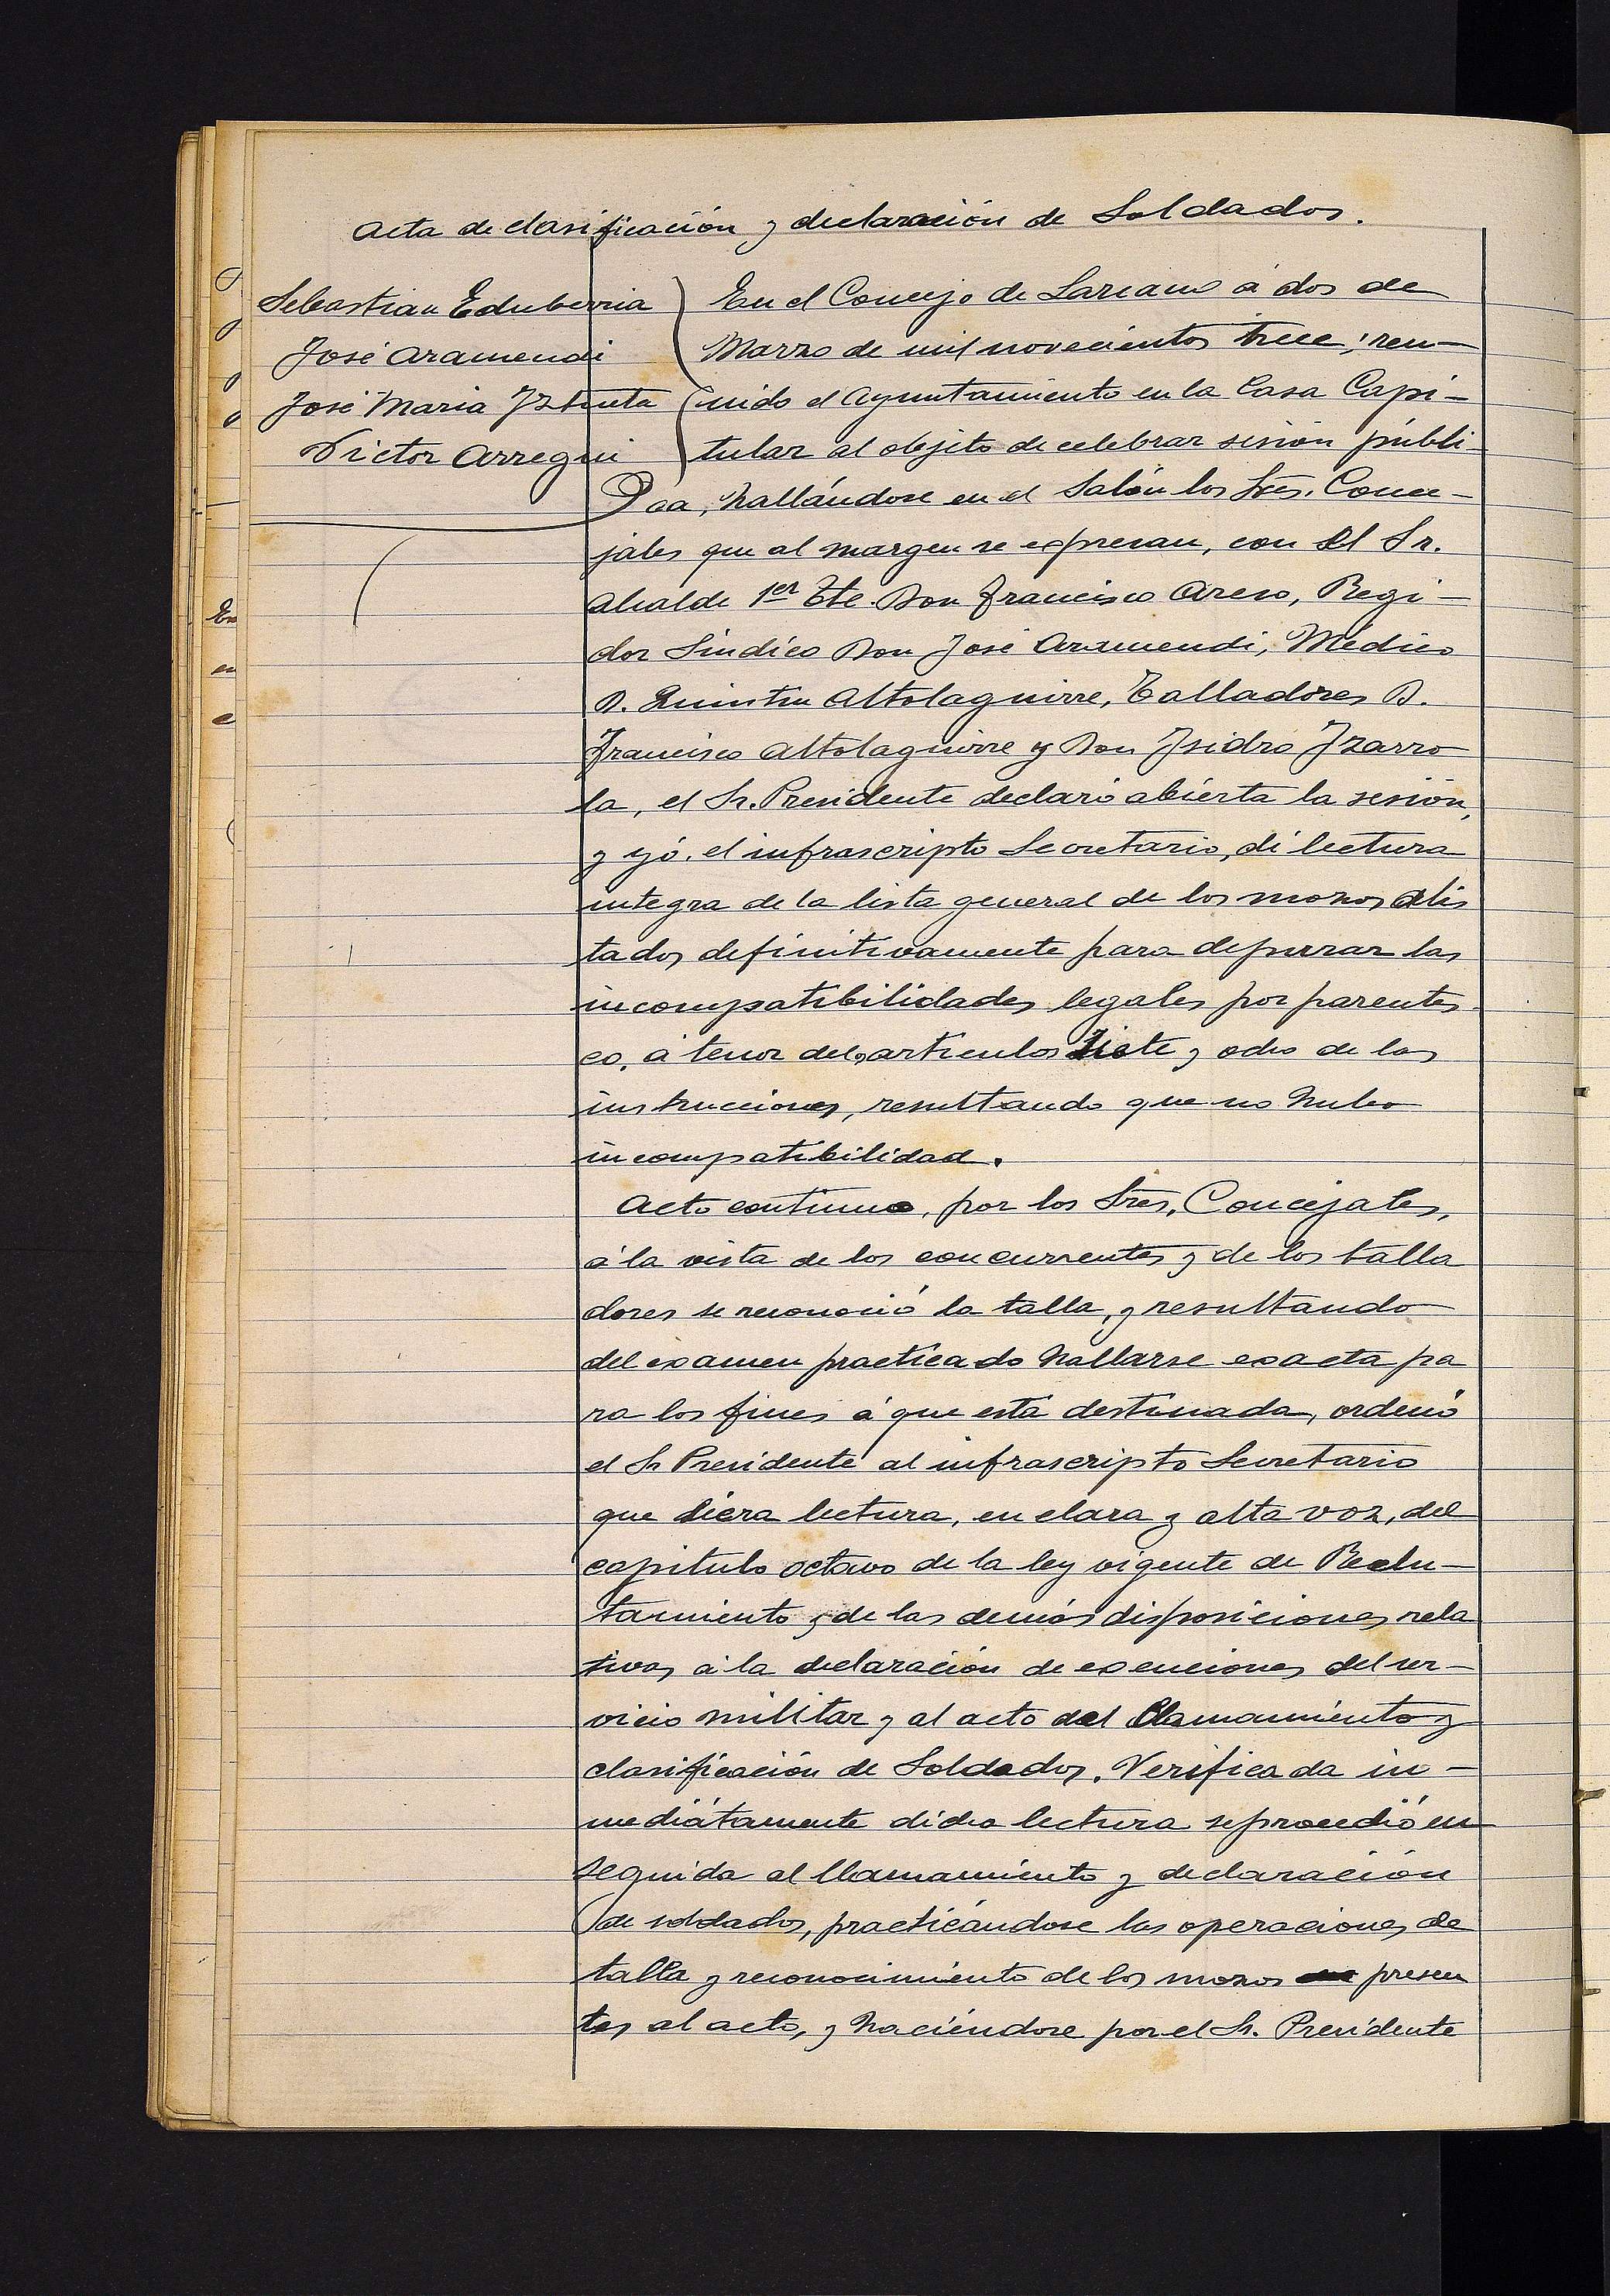 Acta de clasificación y declaración de Soldados.
Sebastian Echeberria
José Aramendi
José Maria Iztueta
Victor Arregui
En el Concejo de Lazcano á dos de
Marzo de mil novecientos trece; reu-
nido el Ayuntamiento en la Casa Capi-
tular al objeto de celebrar sesión públi-
ca, hallándose en el Salón los Sres. Conce-
jales que al margen se expresan, con el Sr.
Alcalde 1er Tte. Don Francisco Areso, Regi-
dor Síndico Don José Aramendi, Médico
D. Quintin Altolaguirre, Talladores D.
Francisco Altolaguirre y Don Isidro Izarro
la, el Sr. Presidente declaró abierta la sesión,
y yó. el infrascripto Secretario, dí lectura
integra de la lista general de los mozos alis
tados definitivamente para depurar las
incompatibilidades legales por parentes
co, á tenor delos articulos siete y ocho de las
instrucciones, resultando que no hubo
incompatibilidad.
Acto continuo, por los Sres. Concejales,
á la vista de los concurrentes y de los talla
dores se reconoció la talla, y resultando
del examen practicado hallarse exacta pa
ra los fines á que está destinada, ordenó
el Sr Presidente al infrascripto Secretario
que diera lectura, en clara y alta voz, del
capitulo octavo de la ley vigente de Reclu-
tamiento y de las demás disposiciones rela
tivas á la declaración de exenciones del ser-
vicio militar y al acto del llamamiento y
clasificación de Soldados. Verificada in-
mediátamente dicha lectura se procedió en
seguida al llamamiento y declaración
de soldados, practicándose las operaciones de
talla y reconocimiento de los mozos presen
tes al acto, y haciéndose por el Sr. Presidente